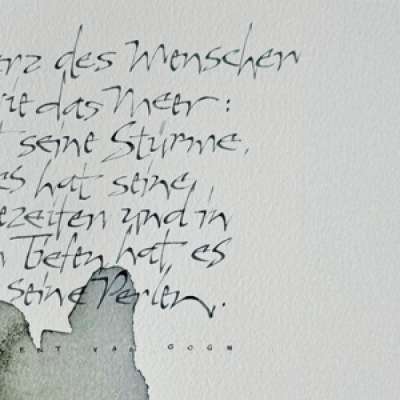 erz des Menschen
ie das Meer:
t seine Stürme,
es hat seine
ezeiten und in
n Tiefen hat es
seine Perlen.
ENT VAN GOGH